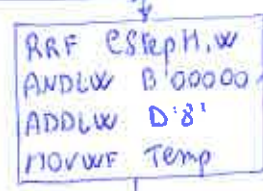 RRF CStepH,W
ANDLW B'00000
ADDLW D'8'
MOVWF Temp